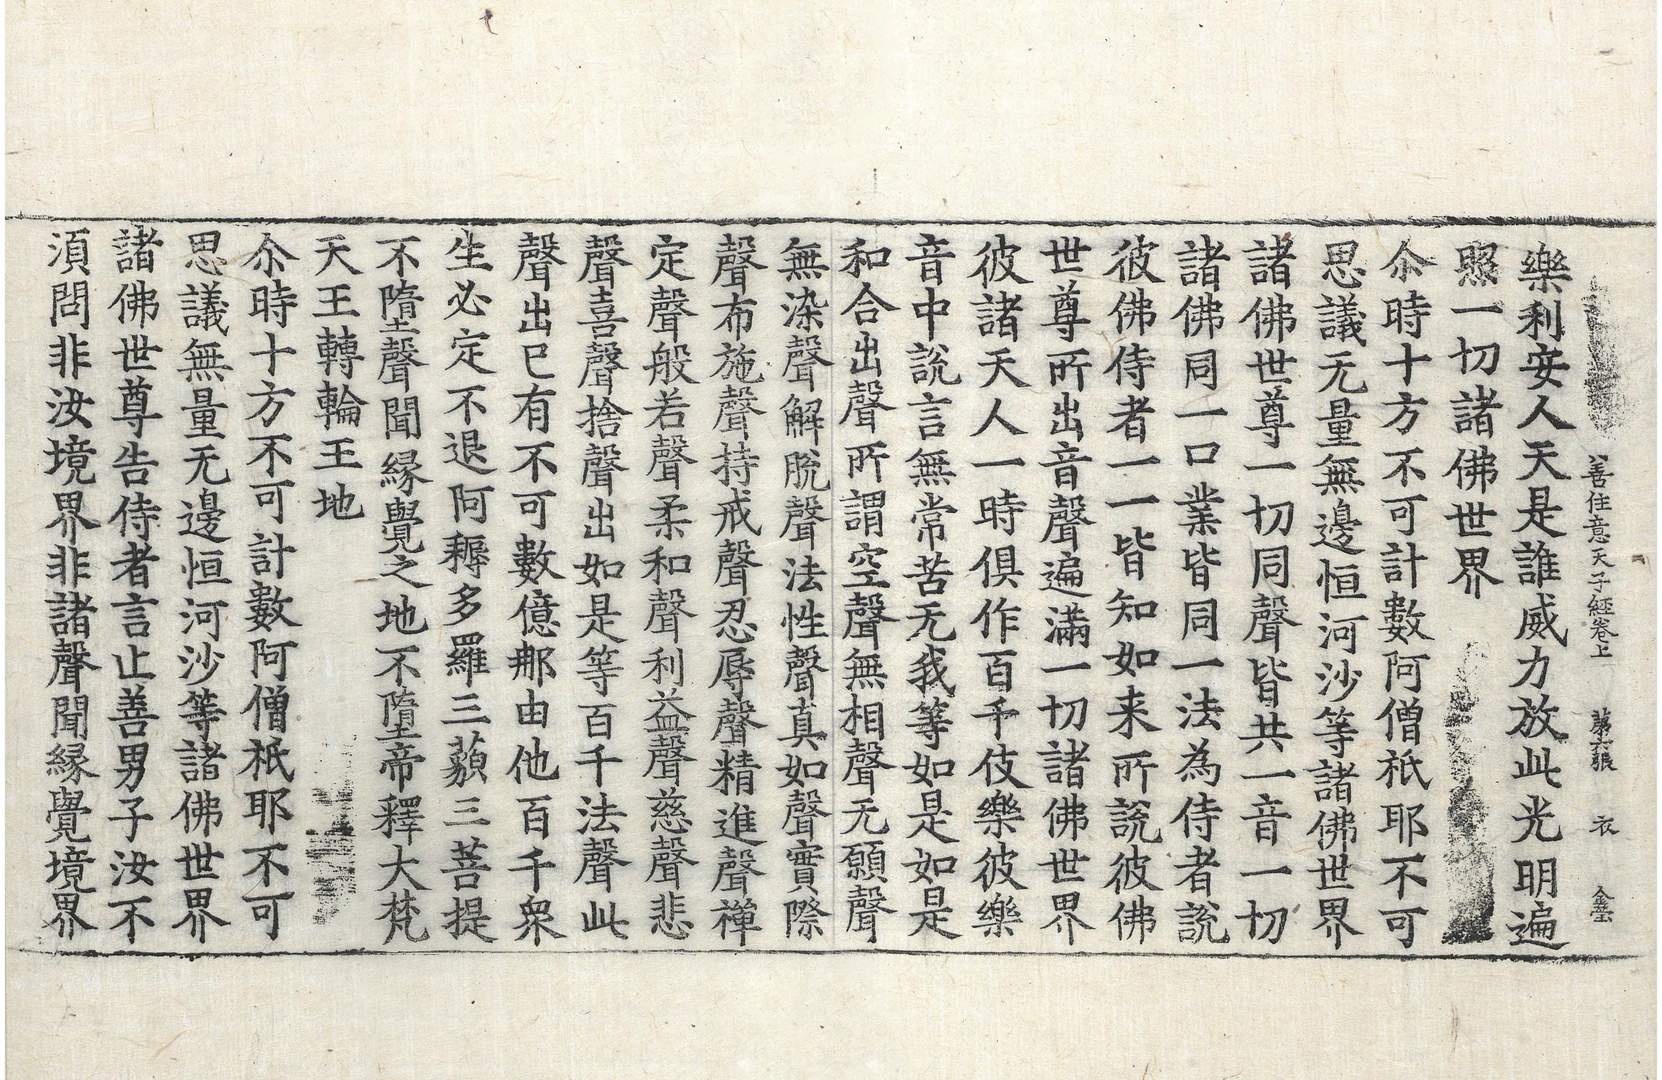 善住意天子經卷上 第六張 衣
樂利安人天是誰威力放此光明遍
照一切諸佛世界
尒時十方不可計數阿僧祇耶不可
思議无量無邊恒河沙等諸佛世界
諸佛世尊一切同聲皆共一音一切
諸佛同一口業皆同一法為侍者說
彼佛侍者一一皆知如来所說彼佛
世尊所出音聲遍滿一切諸佛世界
彼諸天人一時俱作百千伎樂彼樂
音中說言無常苦无我等如是如是
和合出聲所謂空聲無相聲无願聲
無染聲解脫聲法性聲真如聲實際
聲布施聲持戒聲忍辱聲精進聲禪
定聲般若聲柔和聲利益聲慈聲悲
聲喜聲捨聲出如是等百千法聲此
聲出已有不可數億那由他百千衆
生必定不退阿耨多羅三藐三菩提
不墮聲聞緣覺之地不墮帝釋大梵
天王轉輪王地
尒時十方不可計數阿僧祇耶不可
思議無量无邊恒河沙等諸佛世界
諸佛世尊告侍者言止善男子汝不
湏問非汝境界非諸聲聞緣覺境界